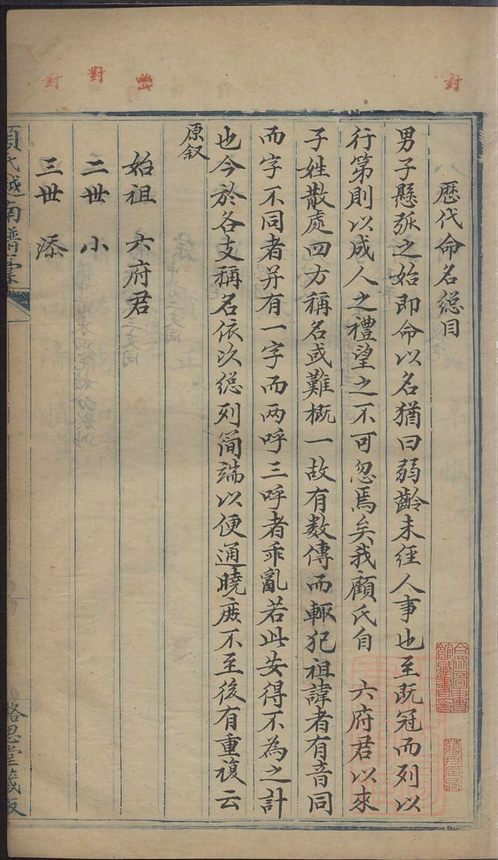 對
對
對
歷代命名總目
男子懸弧之始即命以名猶曰弱齡未經人事也至既冠而列以
行第則以成人之禮望之不可忽焉矣我顧氏自 六府君以來
子姓散處四方稱名或難概一故有數傳而輒犯祖諱者有音同
而字不同者并有一字而两呼三呼者乖亂若此安得不為之計
也今於各支稱名依次總列簡端以便通曉庶不至後有重複云
原叙
始祖 六府君
二世 小
三世 添
顧氏越南譜彙
恩堂藏板